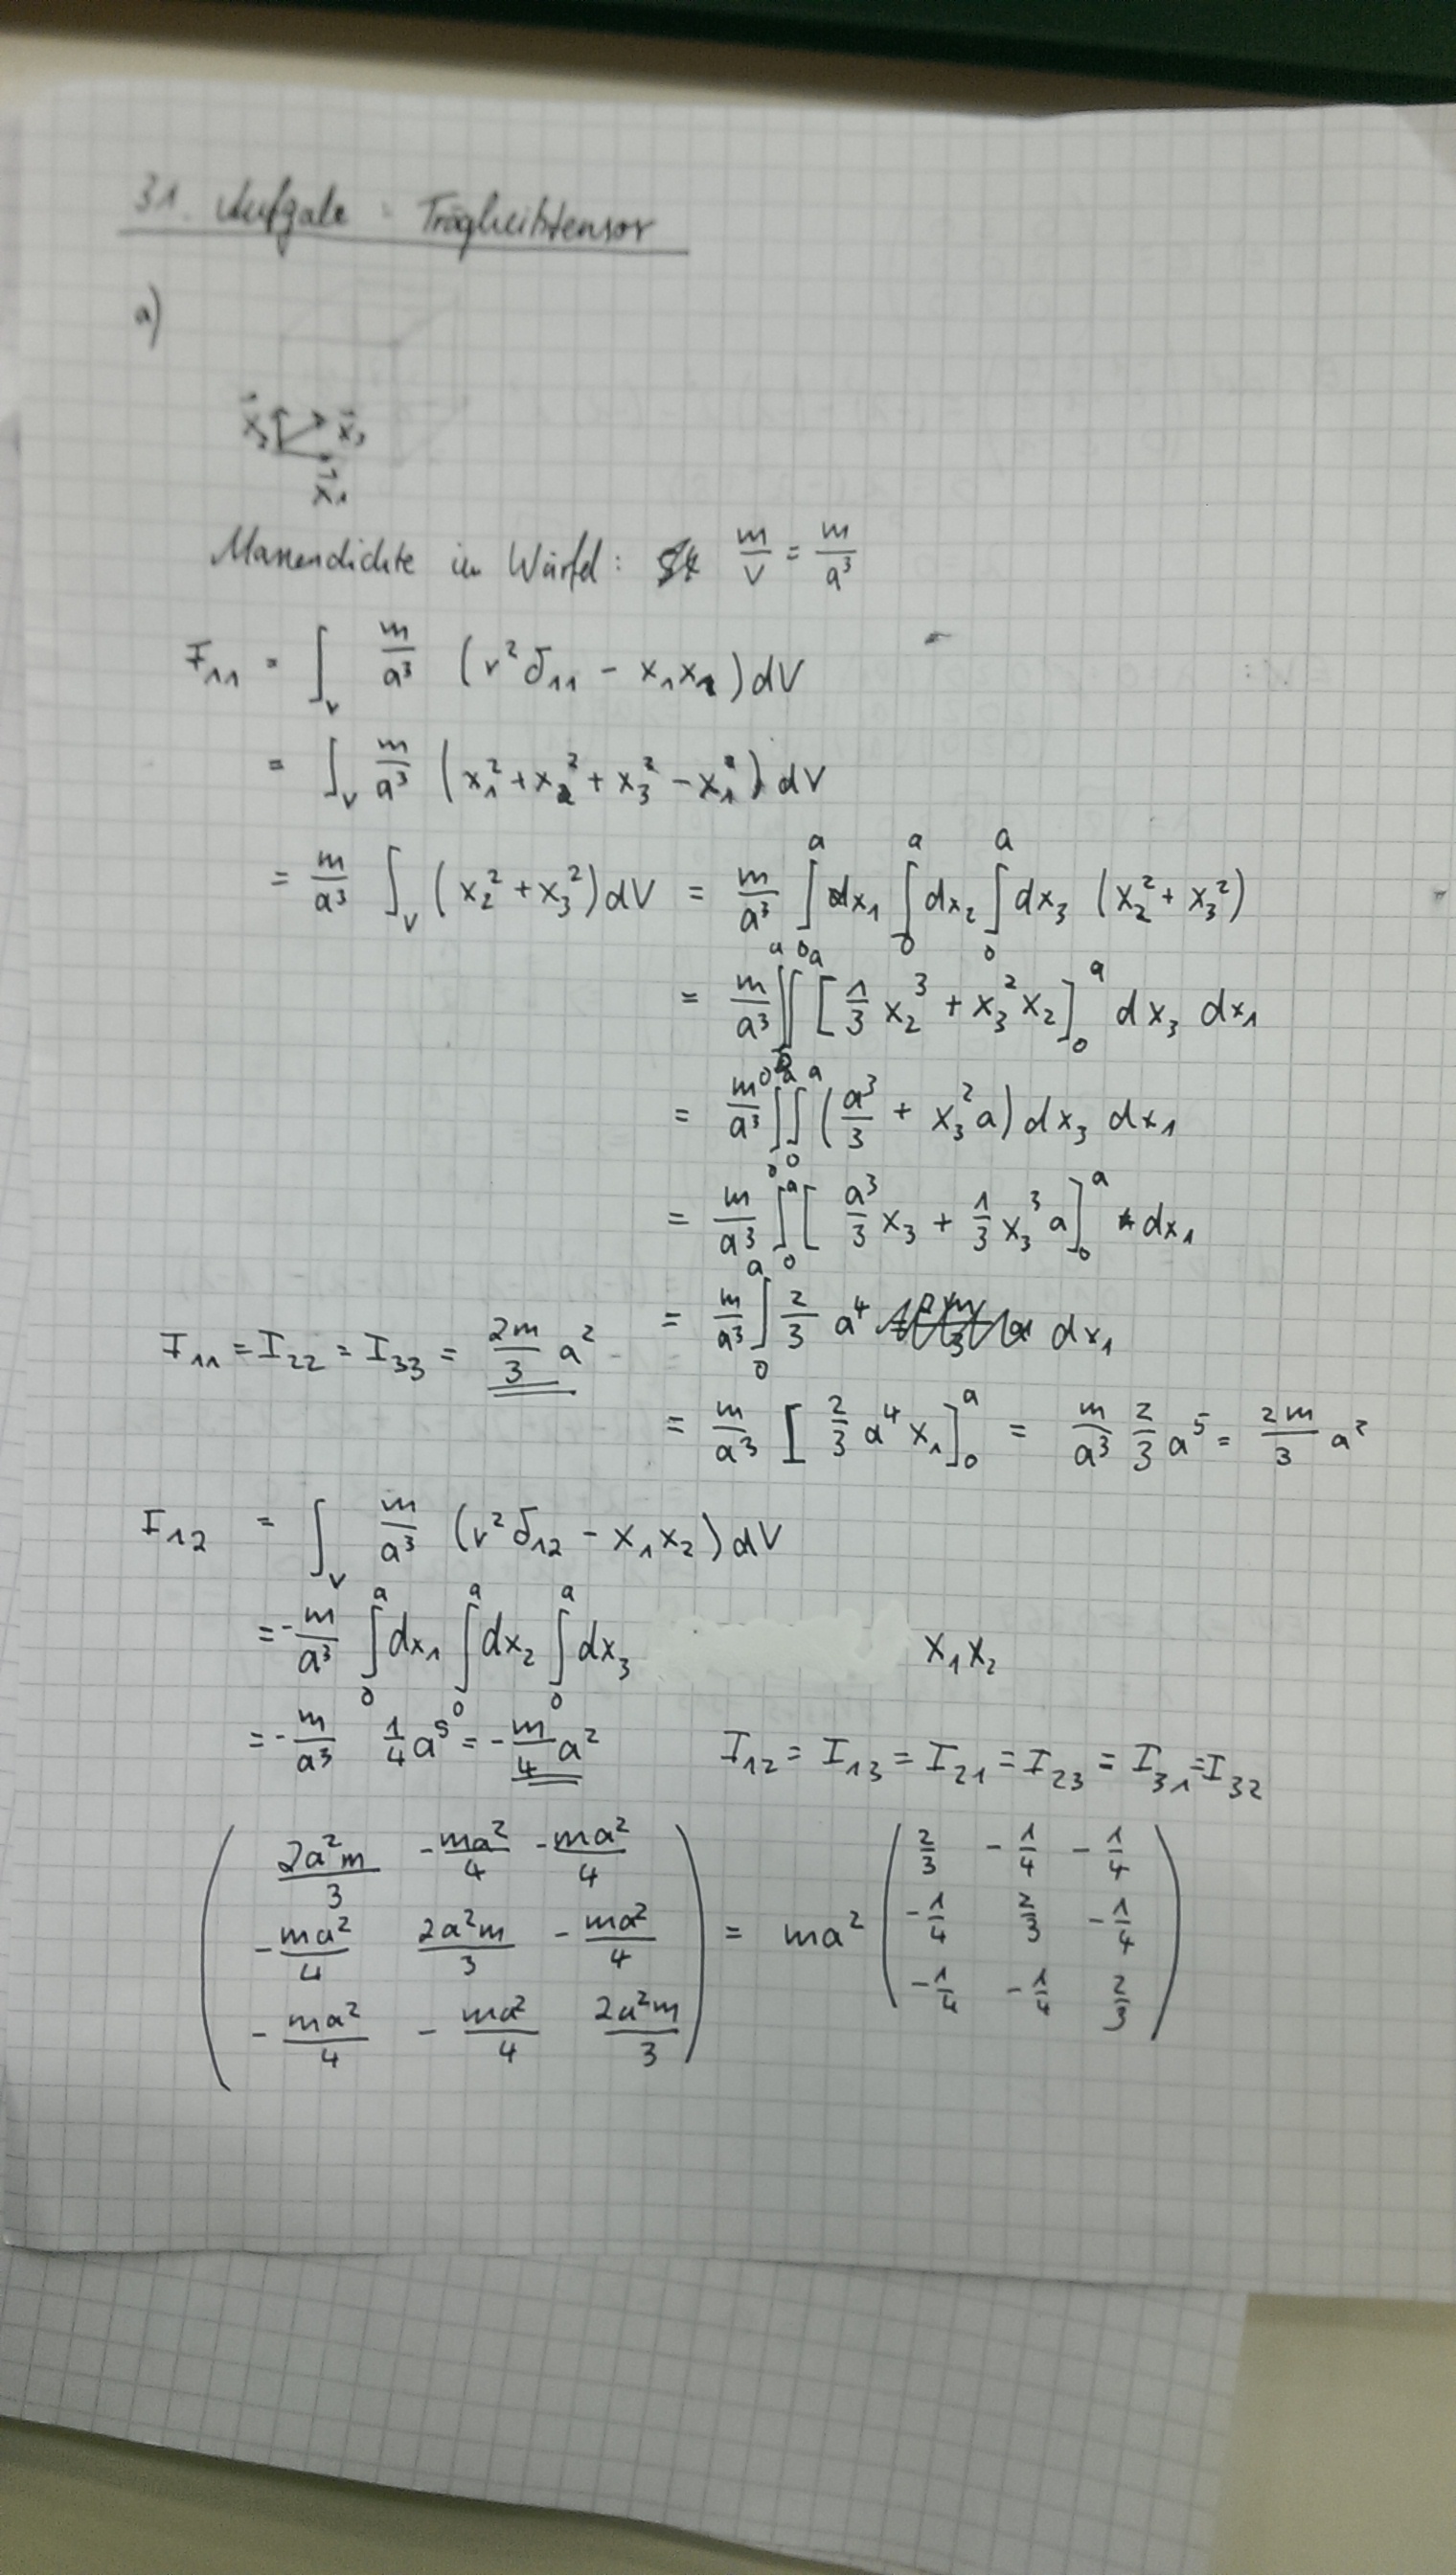 31. Aufgabe: Trägheitstensor
a)
x⃗₂ x⃗₃
x⃗₁
Massendichte im Würfel: m/V = m/a³
I₁₁ = ∫_V m/a³ (r² δ₁₁ - x₁x₁) dV
= ∫_V m/a³ (x₁² + x₂² + x₃² - x₁²) dV
= m/a³ ∫_V (x₂² + x₃²) dV = m/a³ ∫₀ᵃ dx₁ ∫₀ᵃ dx₂ ∫₀ᵃ dx₃ (x₂² + x₃²)
= m/a³ ∫₀ᵃ∫₀ᵃ [1/3 x₂³ + x₃² x₂]₀ᵃ dx₃ dx₁
= m/a³ ∫₀ᵃ∫₀ᵃ (a³/3 + x₃² a) dx₃ dx₁
= m/a³ ∫₀ᵃ [a³/3 x₃ + 1/3 x₃³ a]₀ᵃ dx₁
= m/a³ ∫₀ᵃ 2/3 a⁴ dx₁
I₁₁ = I₂₂ = I₃₃ = 2m/3 a²
= m/a³ [2/3 a⁴ x₁]₀ᵃ = m/a³ 2/3 a⁵ = 2m/3 a²
I₁₂ = ∫_V m/a³ (r² δ₁₂ - x₁x₂) dV
= - m/a³ ∫₀ᵃ dx₁ ∫₀ᵃ dx₂ ∫₀ᵃ dx₃ x₁x₂
= - m/a³ 1/4 a⁵ = - m/4 a² I₁₂ = I₁₃ = I₂₁ = I₂₃ = I₃₁ = I₃₂
( 2a²m/3 - ma²/4 - ma²/4 ) ( 2/3 - 1/4 - 1/4 )
( - ma²/4 2a²m/3 - ma²/4 ) = ma² ( - 1/4 2/3 - 1/4 )
( - ma²/4 - ma²/4 2a²m/3 ) ( - 1/4 - 1/4 2/3 )